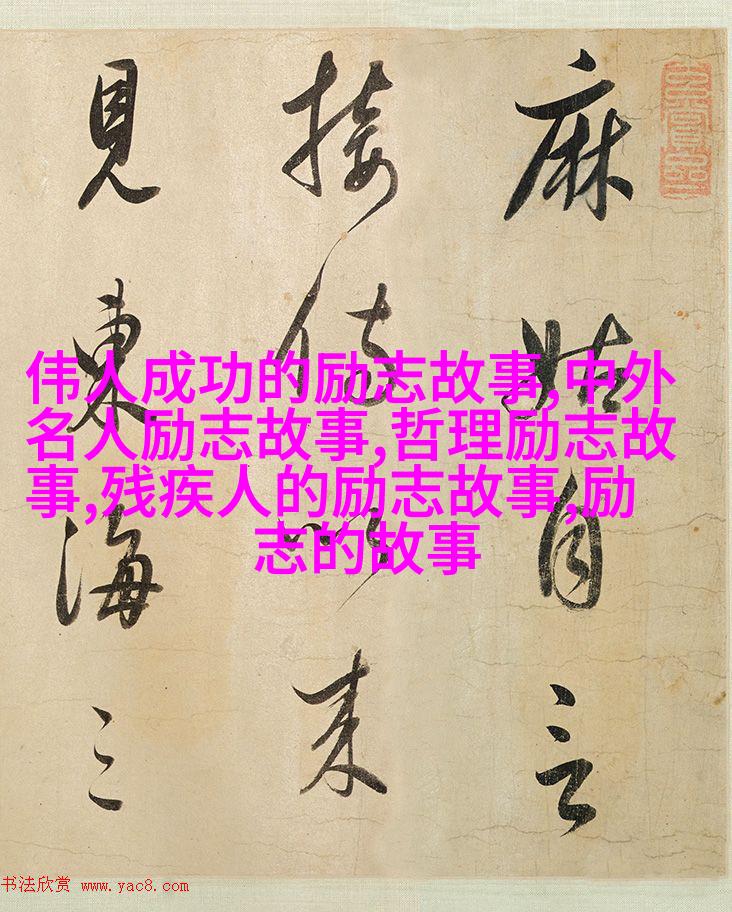 麻姑自言
接侍以来
見東海三
伟人成功的励志故事,中外
名人励志故事,哲理励志故
事,残疾人的励志故事,励
志的故事
书法欣赏 www.yac8.com